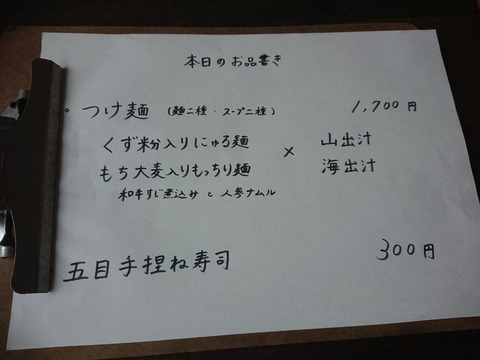 本日のお品書き
・つけ麺 (麺二種・スープ二種) 1,700円
くず粉入りにゅる麺 × 山出汁
もち大麦入りもっちり麺 海出汁
和牛すじ煮込み と 人参ナムル
五目手捏ね寿司 300円